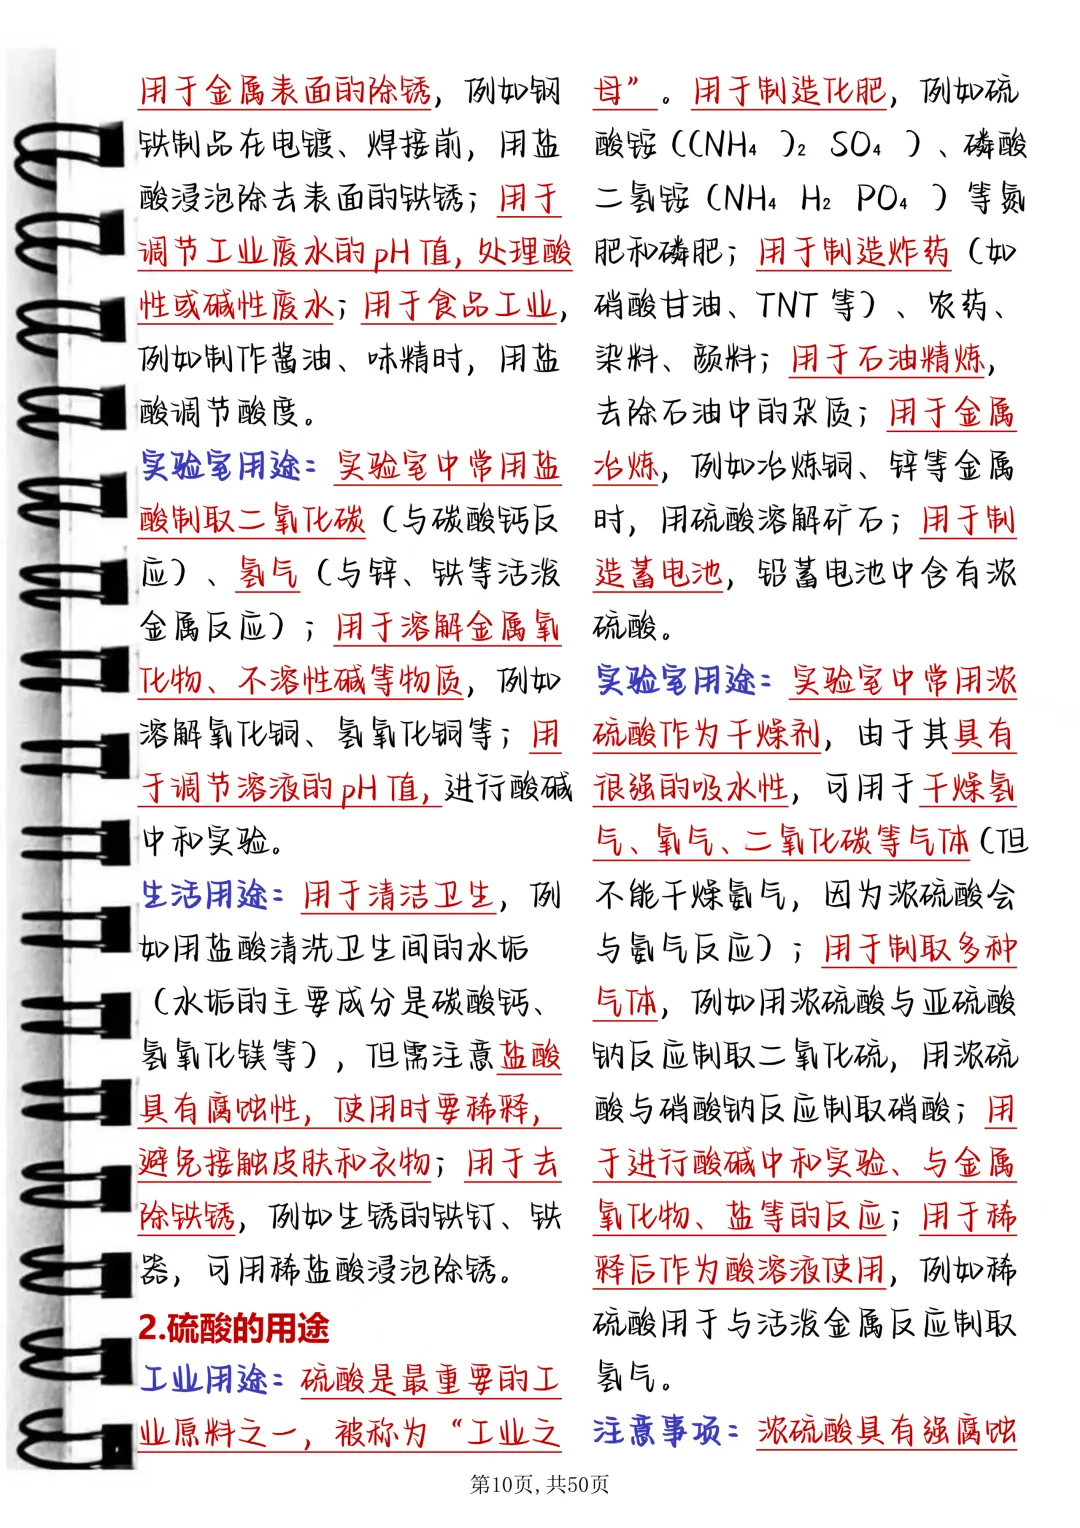 用于金属表面的除锈，例如钢
铁制品在电镀、焊接前，用盐
酸浸泡除去表面的铁锈；用于
调节工业废水的pH值，处理酸
性或碱性废水；用于食品工业，
例如制作酱油、味精时，用盐
酸调节酸度。
实验室用途：实验室中常用盐
酸制取二氧化碳（与碳酸钙反
应）、氢气（与锌、铁等活泼
金属反应）；用于溶解金属氧
化物、不溶性碱等物质，例如
溶解氧化铜、氢氧化铜等；用
于调节溶液的pH值，进行酸碱
中和实验。
生活用途：用于清洁卫生，例
如用盐酸清洗卫生间的水垢
（水垢的主要成分是碳酸钙、
氢氧化镁等），但需注意盐酸
具有腐蚀性，使用时要稀释，
避免接触皮肤和衣物；用于去
除铁锈，例如生锈的铁钉、铁
器，可用稀盐酸浸泡除锈。
2.硫酸的用途
工业用途：硫酸是最重要的工
业原料之一，被称为“工业之
母”。用于制造化肥，例如硫
酸铵（(NH₄ )₂ SO₄ ）、磷酸
二氢铵（NH₄ H₂ PO₄ ）等氮
肥和磷肥；用于制造炸药（如
硝酸甘油、TNT等）、农药、
染料、颜料；用于石油精炼，
去除石油中的杂质；用于金属
冶炼，例如冶炼铜、锌等金属
时，用硫酸溶解矿石；用于制
造蓄电池，铅蓄电池中含有浓
硫酸。
实验室用途：实验室中常用浓
硫酸作为干燥剂，由于其具有
很强的吸水性，可用于干燥氢
气、氧气、二氧化碳等气体（但
不能干燥氨气，因为浓硫酸会
与氨气反应）；用于制取多种
气体，例如用浓硫酸与亚硫酸
钠反应制取二氧化硫，用浓硫
酸与硝酸钠反应制取硝酸；用
于进行酸碱中和实验、与金属
氧化物、盐等的反应；用于稀
释后作为酸溶液使用，例如稀
硫酸用于与活泼金属反应制取
氢气。
注意事项：浓硫酸具有强腐蚀
第10页,共50页